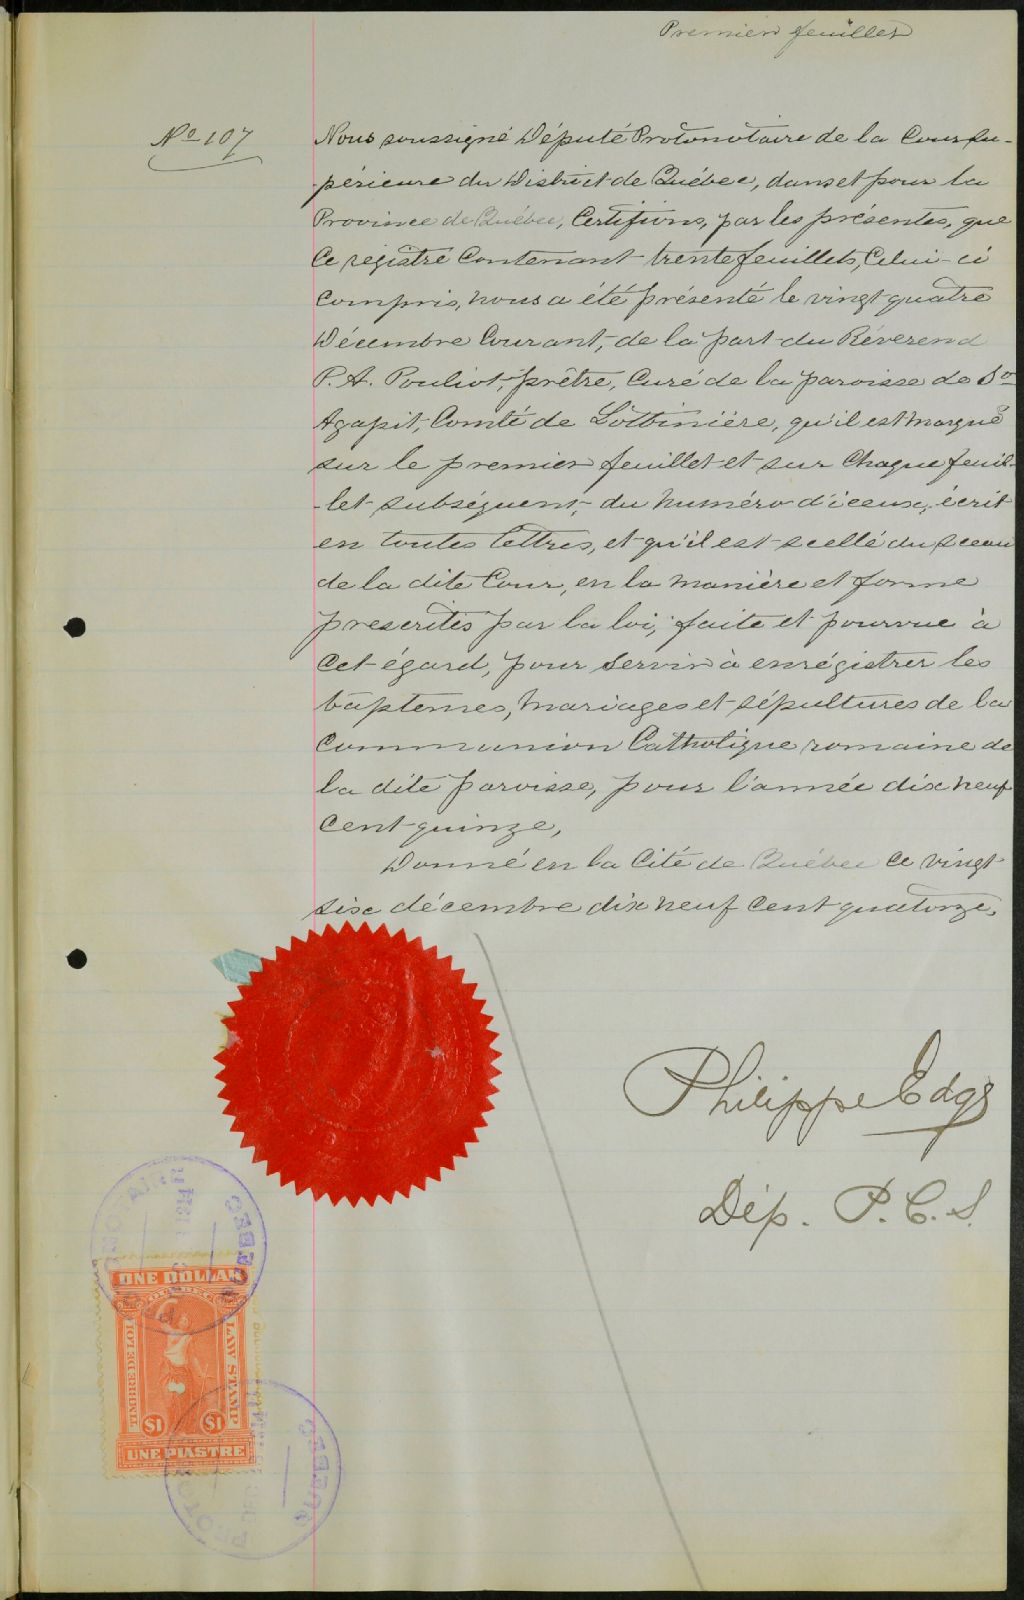 Premier feuillet
No 107
Nous soussigné Député Protonotaire de la Cour Su-
-périeure du District de Québec, dans et pour la
Province de Québec, Certifions, par les présentes, que
Ce régistre Contenant trente feuillets, Celui-ci
Compris, nous a été présenté le vingt quatre
Décembre Courant, de la part du Révérend
P. A. Pouliot, prêtre, Curé de la paroisse de St
Agapit, Comté de Lotbinière, qu'il est marqué
sur le premier feuillet et sur Chaque feuil-
-let subséquent, du numéro d'iceux, écrit
en toutes lettres, et qu'il est scellé du sceau
de la dite Cour, en la manière et forme
prescrites par la loi, faite et pourvue à
Cet égard, pour servir à enrégistrer les
baptemes, mariages et sépultures de la
Communion Catholique romaine de
la dite paroisse, pour l'année dix neuf
Cent quinze,
Donné en la Cité de Québec Ce vingt
six décembre dix neuf Cent quatorze,
Philippe Edge
Dép. P. C. S.
PROTONOTAIRE
QUEBEC
ONE DOLLAR
QUEBEC
TIMBRE DE LOI
LAW STAMP
$1 $1
UNE PIASTRE
QUEBEC
DEC